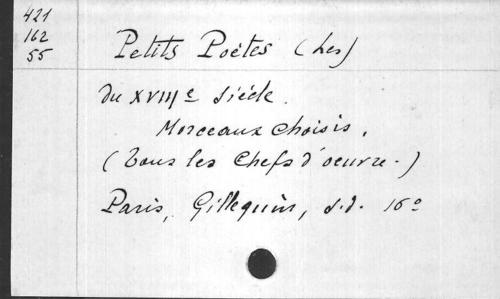 421
162
55
Petits Poëtes (Les)
du XVIIIe Siécle.
Morceaux choisis.
(Tous les Chefs d'oeuvre.)
Paris, Gillequin, s.d. 16o